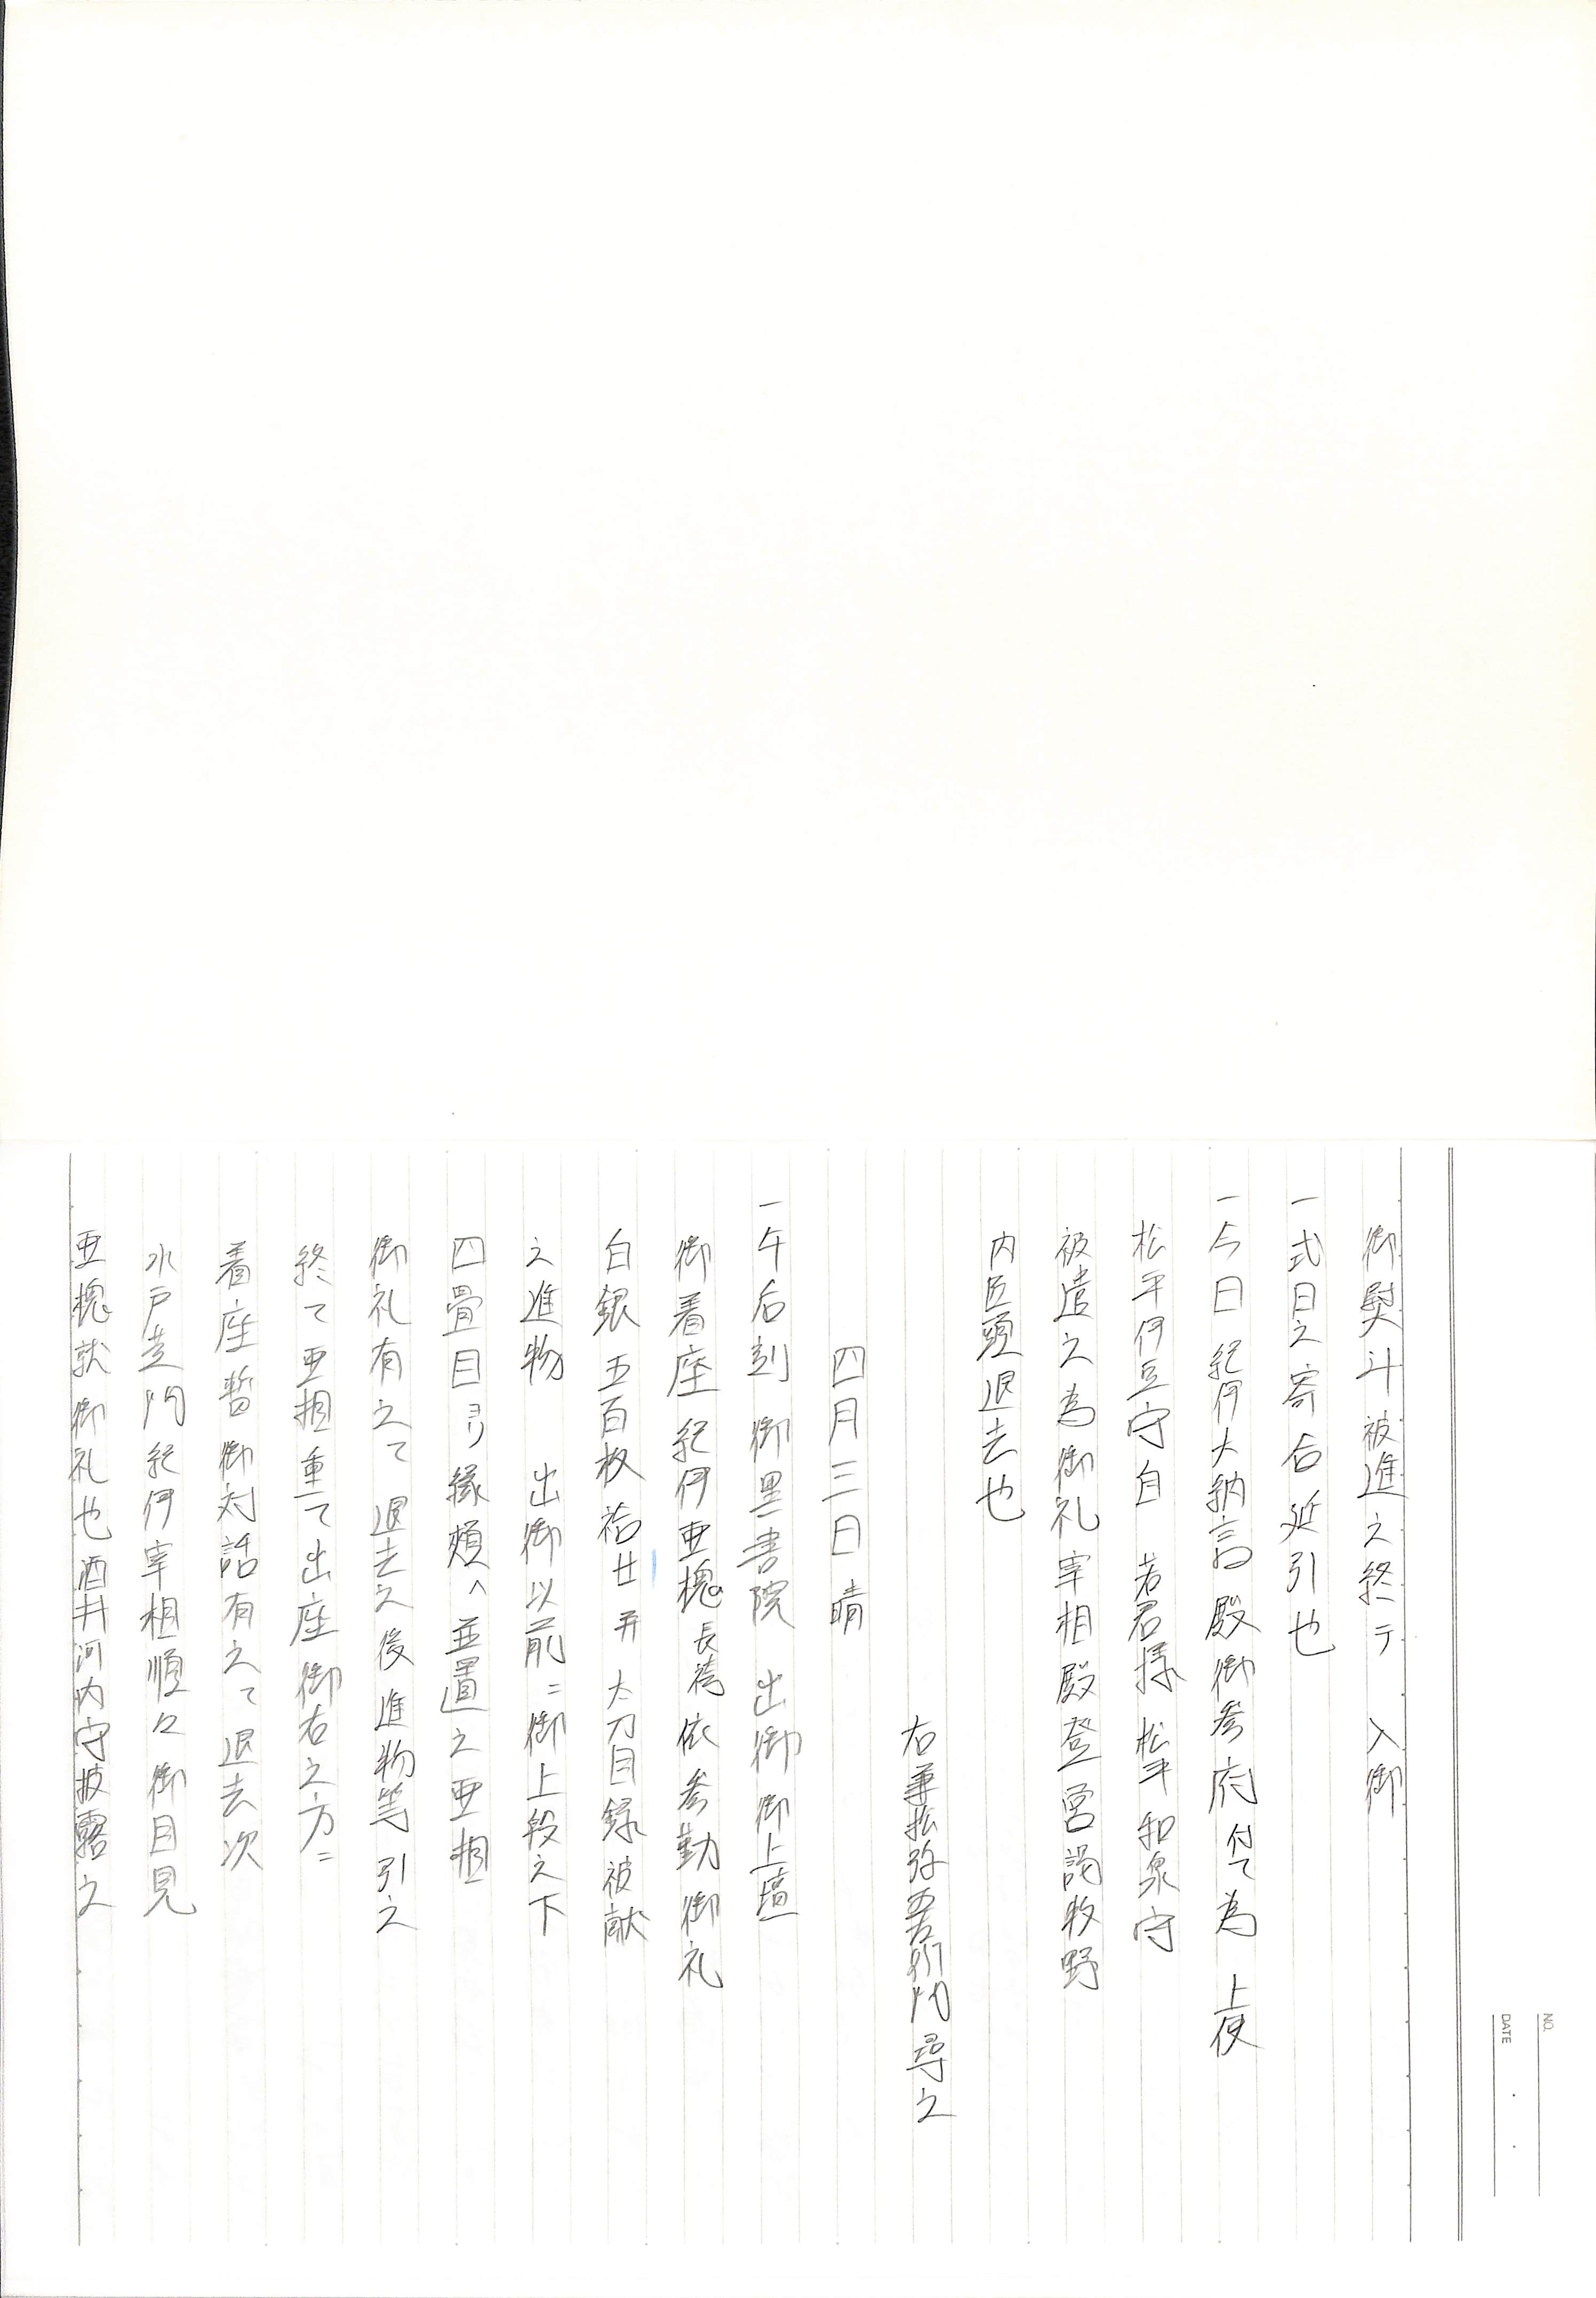 御熨斗被進之終テ　入御
一式日之寄合延引也
一今日紀伊大納言殿御参府付て為　上使
松平伊豆守自　若君様松平和泉守
被遣之為御礼宰相殿登営謁牧野
内匠頭退去也
右兼松弥五左衛門尋之
四月三日晴
一午后刻　御黒書院　出御御上壇
御着座紀伊亜槐長袴依参勤御礼
白銀五百枚袷廿并太刀目録被献
之進物　出御以前ニ御上段之下
四畳目ヨリ縁頬へ並置之亜相
御礼有之て退去之後進物等引之
終て亜相重て出座御右之方ニ
着座暫御対話有之て退去次
水戸黄門紀伊宰相順々御目見
亜槐就御礼也酒井河内守披露之
NO.
DATE